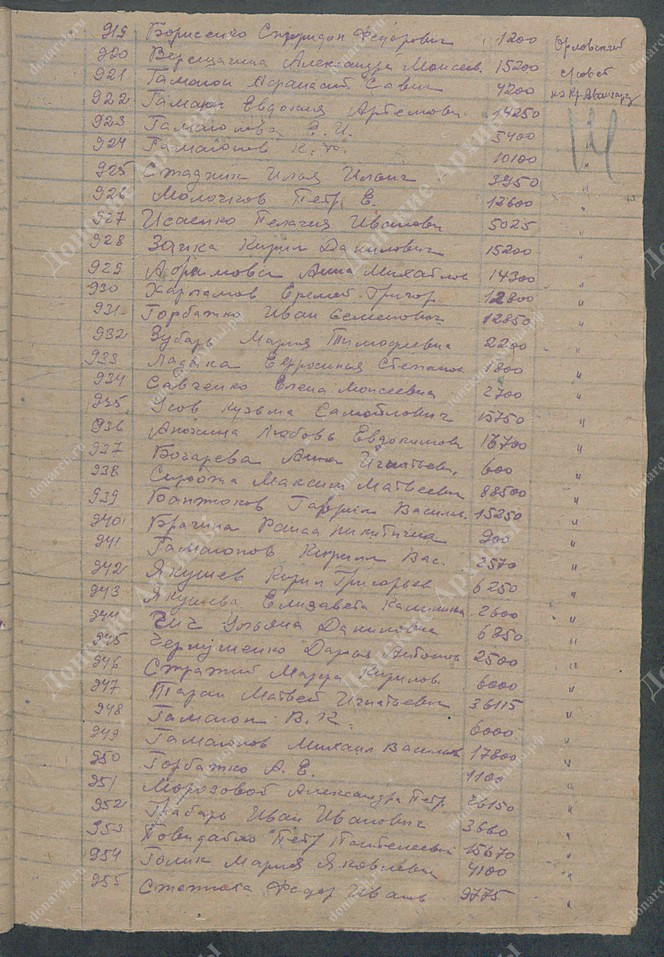 919 Борисенко Спиридон Федорович 1200 Орловский
920 Верещагина Александра Моисеев. 15200 с/совет
921 Гамаюн Афанасий Савич 4200 на Кр. Авангард
922 Гамаюн Евдокия Артемовн. 14250
923 Гамаюнова Е. И. 5400 "
924 Гамаюнов К. 10100 "
925 Илья Ильич 3950 "
926 Молочков Петр Е. 12600 "
927 Исаенко Пелагея Ивановн 5025 "
928 Заика Кирил Данилович 15200 "
929 Абрамова Анна Михайлов 14300 "
930 Харламов Еремей Григор 12800 "
931 Горбатко Иван Семенович 12850 "
932 Зубарь Мария Тимофеевна 2200 "
933 Ефросиния Степанов 1800 "
934 Савченко Елена Моисеевна 2700 "
935 Усов Кузьма Самойлович 15750 "
936 Анохина Любовь Евдокимовна 16700 "
937 Бочарева Анна Игнатьевн. 600 "
938 Максим Матвеевич 88500 "
939 Гаврил Василь. 15250 "
940 Брагина Раиса Никитична 900 "
941 Гамаюнов Кирилл Вас. 2570 "
942 Якушев Кирил Григорьев 6250 "
943 Якушева Елизавета Калиникна 2600 "
944 Ульяна Даниловна 6850 "
945 Чернушенко Дарья Антонов 2500 "
946 Кирилов 6000 "
947 Таран Матвей Игнатьевич 36115 "
948 Гамаюн В. К. 6000 "
949 Гамаюнов Михаил Васильев 17800 "
950 Горбатко А. Е. 1100 "
951 Морозовой Александра Петр. 26150 "
952 Грабарь Иван Иванович 3660 "
953 Петр Пантелеевич 15670 "
954 Голик Мария Яковлевн 4100 "
955 Федор Иванов 9775 "